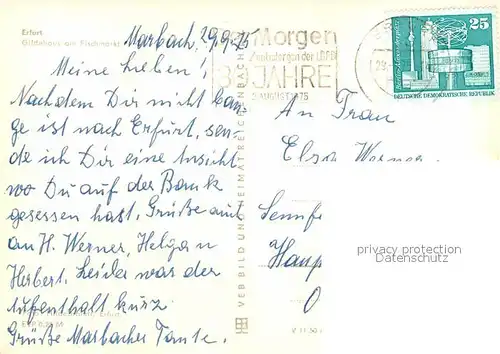 Erfurt
Gildehaus am Fischmarkt
Marbach, 29.9.75
Meine Lieben!
Nachdem Dir nicht ban-
ge ist nach Erfurt, sen-
de ich Dir eine Ansicht
wo Du auf der Bank
gesessen hast. Grüße auch
an H. Werner, Helga u
Herbert. Leider war der
Aufenthalt kurz
Grüße Marbacher Tante.
Morgen
Zentralorgan der LDPD
JAHRE
AUGUST 1975
25
DEUTSCHE DEMOKRATISCHE REPUBLIK
An Frau
Elsa Werner
Haup
O
VEB BILD UND HEIMAT REICHENBACH
V 11 50
privacy protection
DarkArtsMedia GmbH